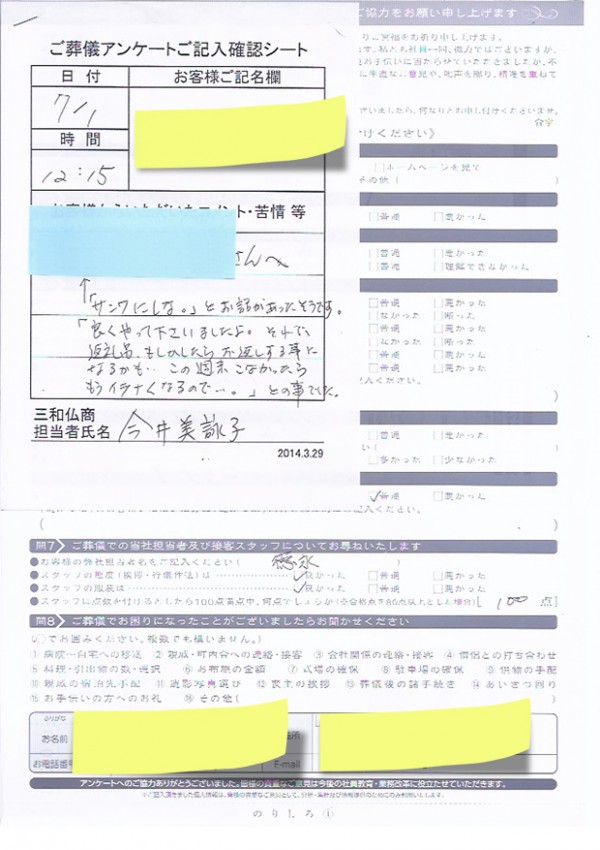 ご協力をお願い申し上げます
ご葬儀アンケートご記入確認シート
日付
お客様ご記名欄
7/1
時間
12:15
コメント・苦情 等
さんへ
↑「サンワにしな。」とお話があったそうです。
「良くやって下さいましたよ。それで、
返礼品、もしかしたらお返しする事に
なるかも… この週末こなかったら
もうイラナくなるので…。」との事でした。
三和仏商
担当者氏名 今井美詠子
2014.3.29
ホームページを見て
その他(
普通 悪かった
普通 悪かった
普通 理解できなかった
普通 悪かった
なかった 断った
普通 悪かった
なかった 断った
普通 悪かった
普通 悪かった
多かった 少なかった
普通 悪かった
問7 ご葬儀での当社担当者及び接客スタッフについてお尋ねいたします
●お客様の弊社担当者名をご記入ください( 徳永
●スタッフの態度(挨拶・行儀作法)は 良かった 普通 悪かった
●スタッフの服装は 良かった 普通 悪かった
●スタッフに点数を付けるとしたら100点満点中、何点でしょうか(※合格点を80点以上とした場合)[ 100 点]
問8 ご葬儀でお困りになったことがございましたらお聞かせください
(○でお囲みください。複数でも構いません。)
①病院→自宅への移送 ②親戚・町内会への連絡・接客 ③会社関係の連絡・接客 ④僧侶との打ち合わせ
⑤料理・引出物の数・選択 ⑥お布施の金額 ⑦式場の確保 ⑧駐車場の確保 ⑨供物の手配
⑩親戚の宿泊先手配 ⑪遺影写真選び ⑫喪主の挨拶 ⑬葬儀後の諸手続き ⑭あいさつ回り
⑮お手伝いの方へのお礼 ⑯その他( )
お名前
お電話番号
E-mail
アンケートへのご協力ありがとうございました。皆様の貴重なご意見は今後の社員教育・業務改革に役立たせていただきます。
のりしろ①